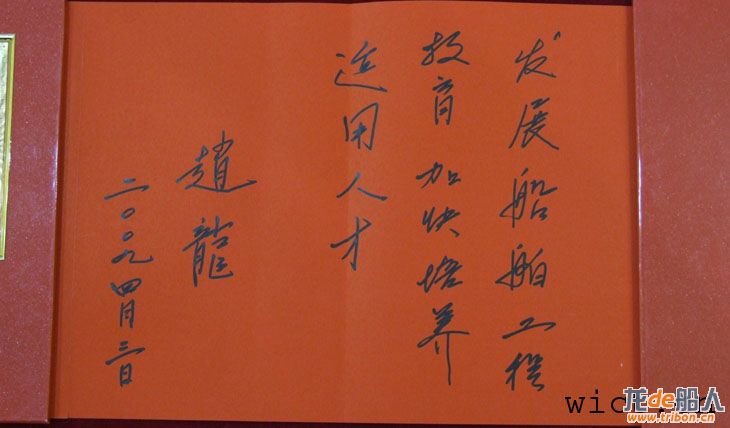 发展船舶工程
教育 加快培养
适用人才
趙龍
二〇〇九 四月三日
龙de船人
www.tribon.cn